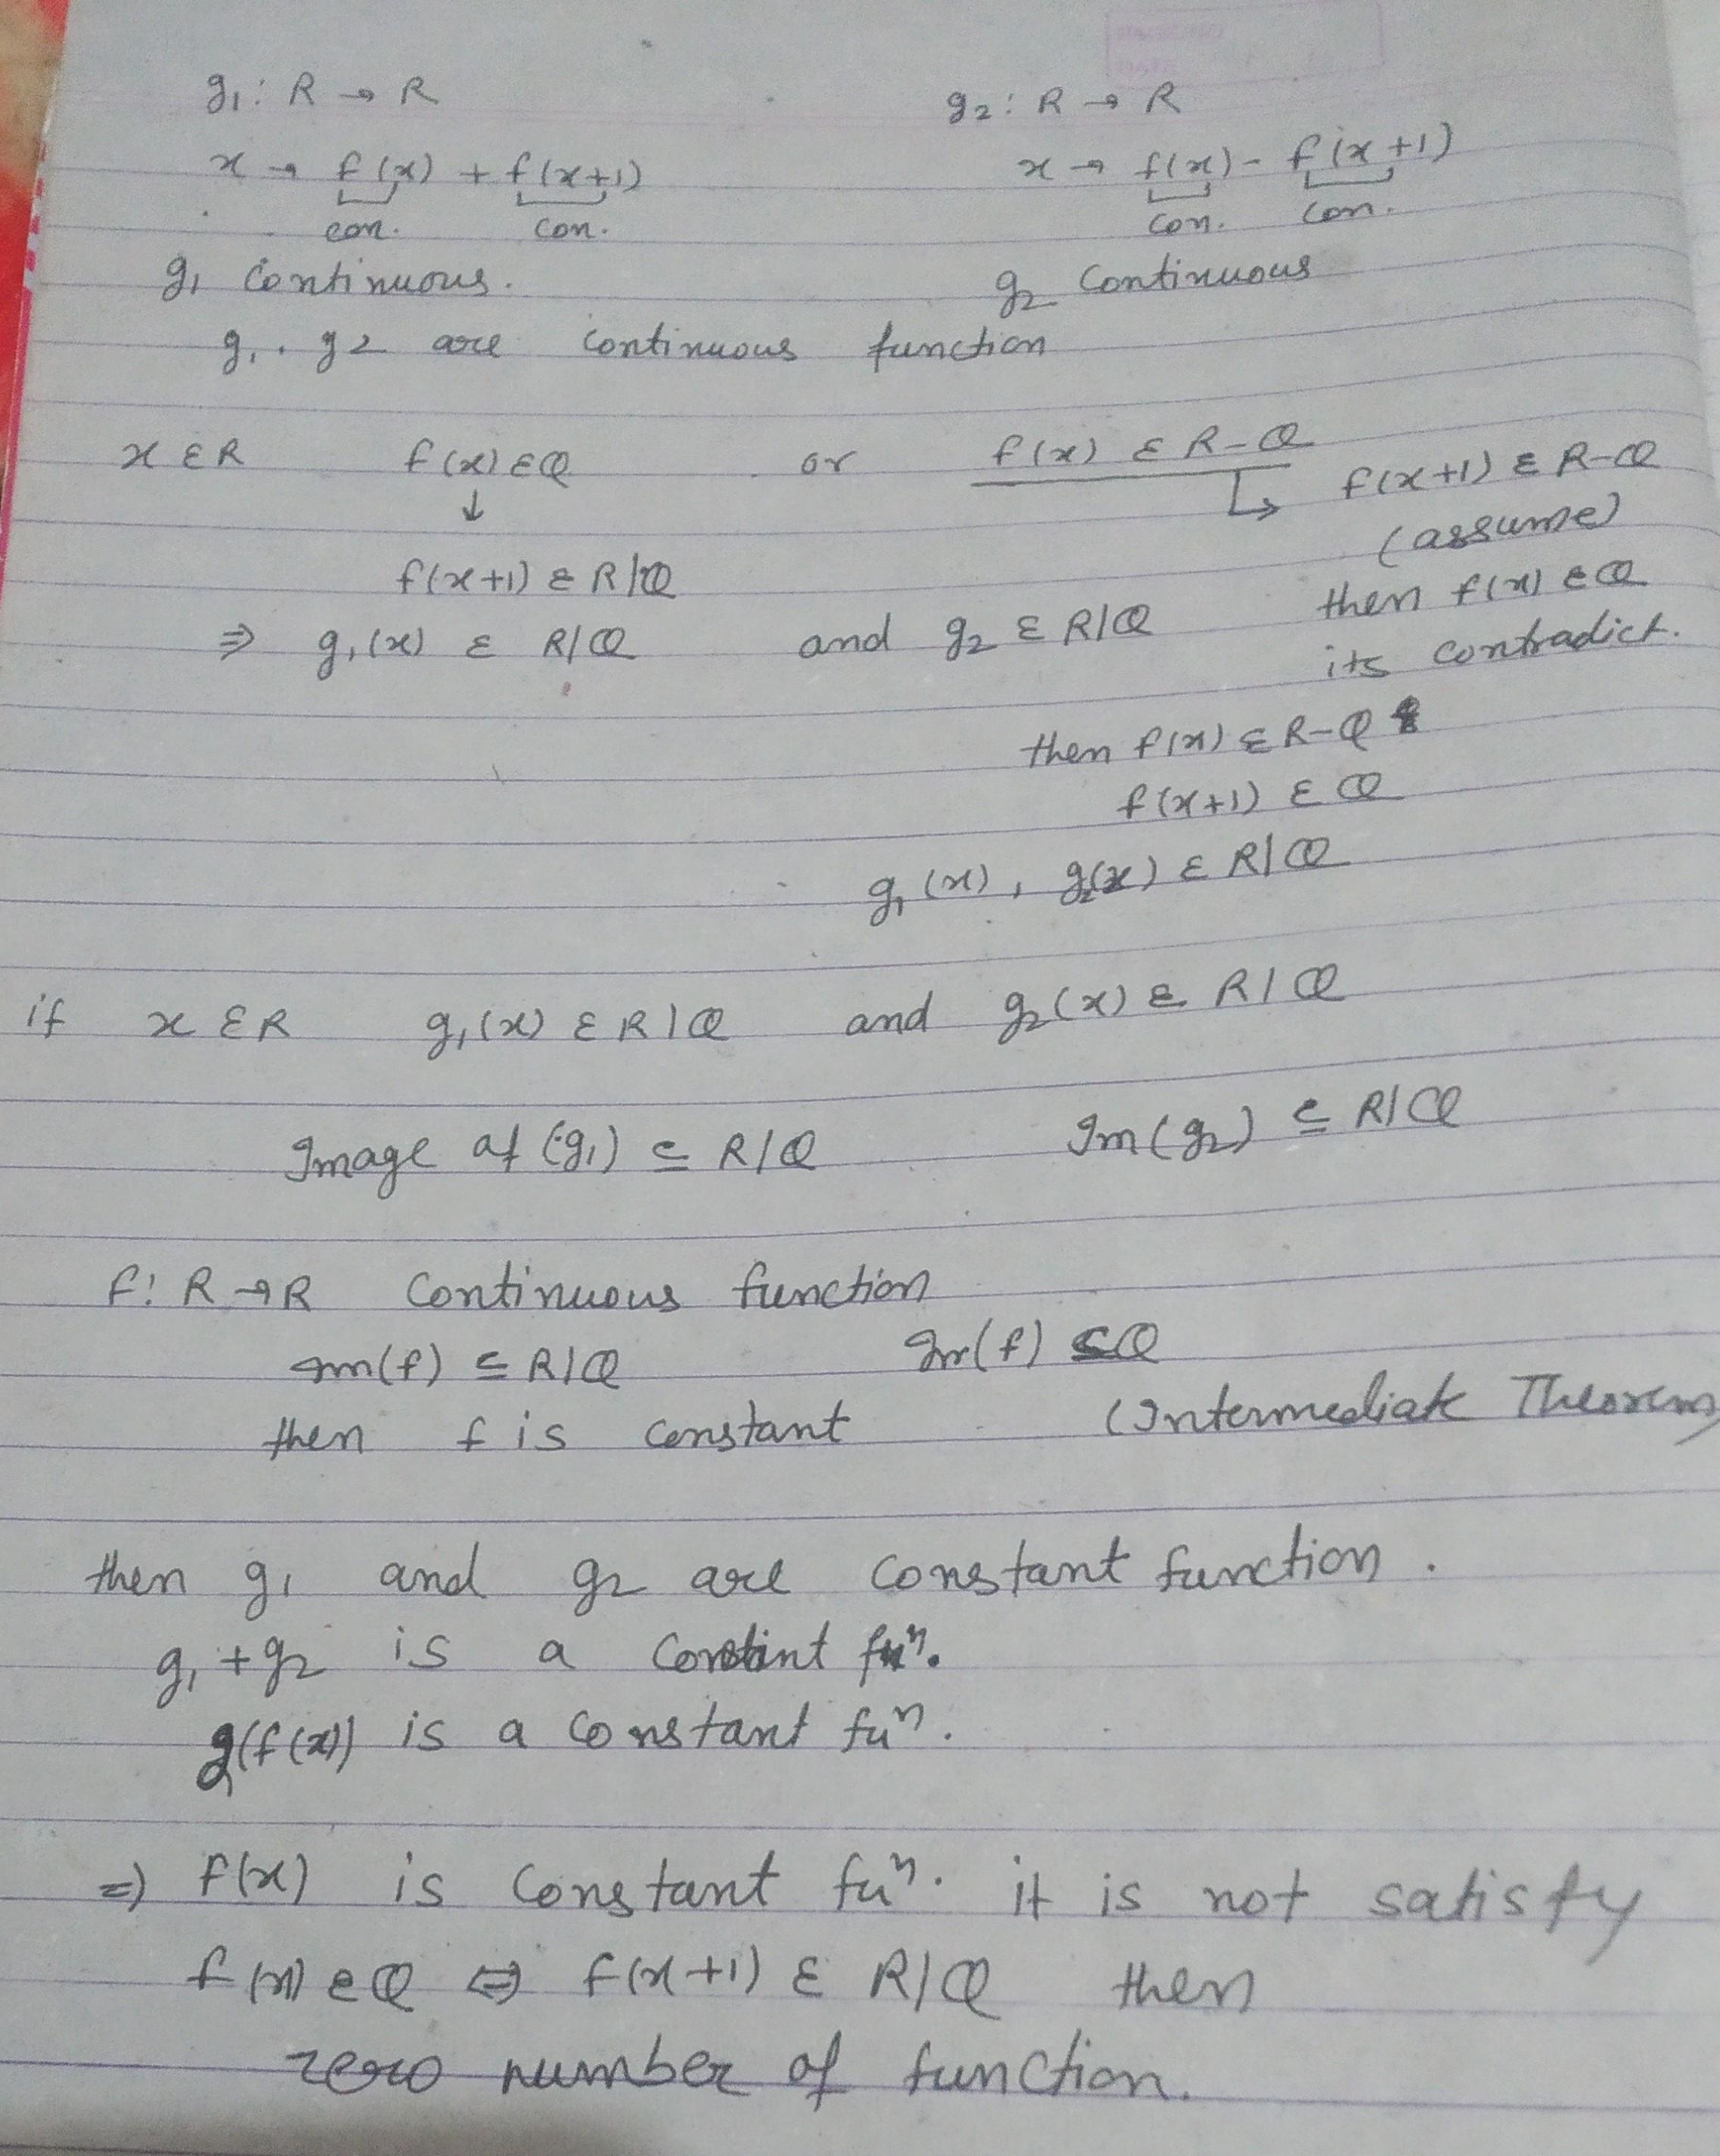 g₁: R → R g₂: R → R
x → f(x) + f(x+1) x → f(x) - f(x+1)
con. con. con. con.
g₁ Continuous. g₂ Continuous
g₁, g₂ are continuous function
x ε R f(x) ε Q or f(x) ε R-Q
↓ ↳ f(x+1) ε R-Q
(assume)
f(x+1) ε R/Q then f(x) ε Q
⇒ g₁(x) ε R/Q and g₂ ε R/Q its contradict.
then f(x) ε R-Q
f(x+1) ε Q
g₁(x), g₂(x) ε R/Q
if x ε R g₁(x) ε R/Q and g₂(x) ε R/Q
Image of (g₁) ⊆ R/Q Im(g₂) ⊆ R/Q
f: R → R Continuous function
Im(f) ⊆ R/Q Im(f) ⊆ Q
then f is constant (Intermediate Theorem)
then g₁ and g₂ are constant function.
g₁ + g₂ is a constint fuⁿ.
2(f(x)) is a constant fuⁿ.
⇒ f(x) is constant fuⁿ. it is not satisfy
f(x) ε Q ⇔ f(x+1) ε R/Q then
zero number of function.